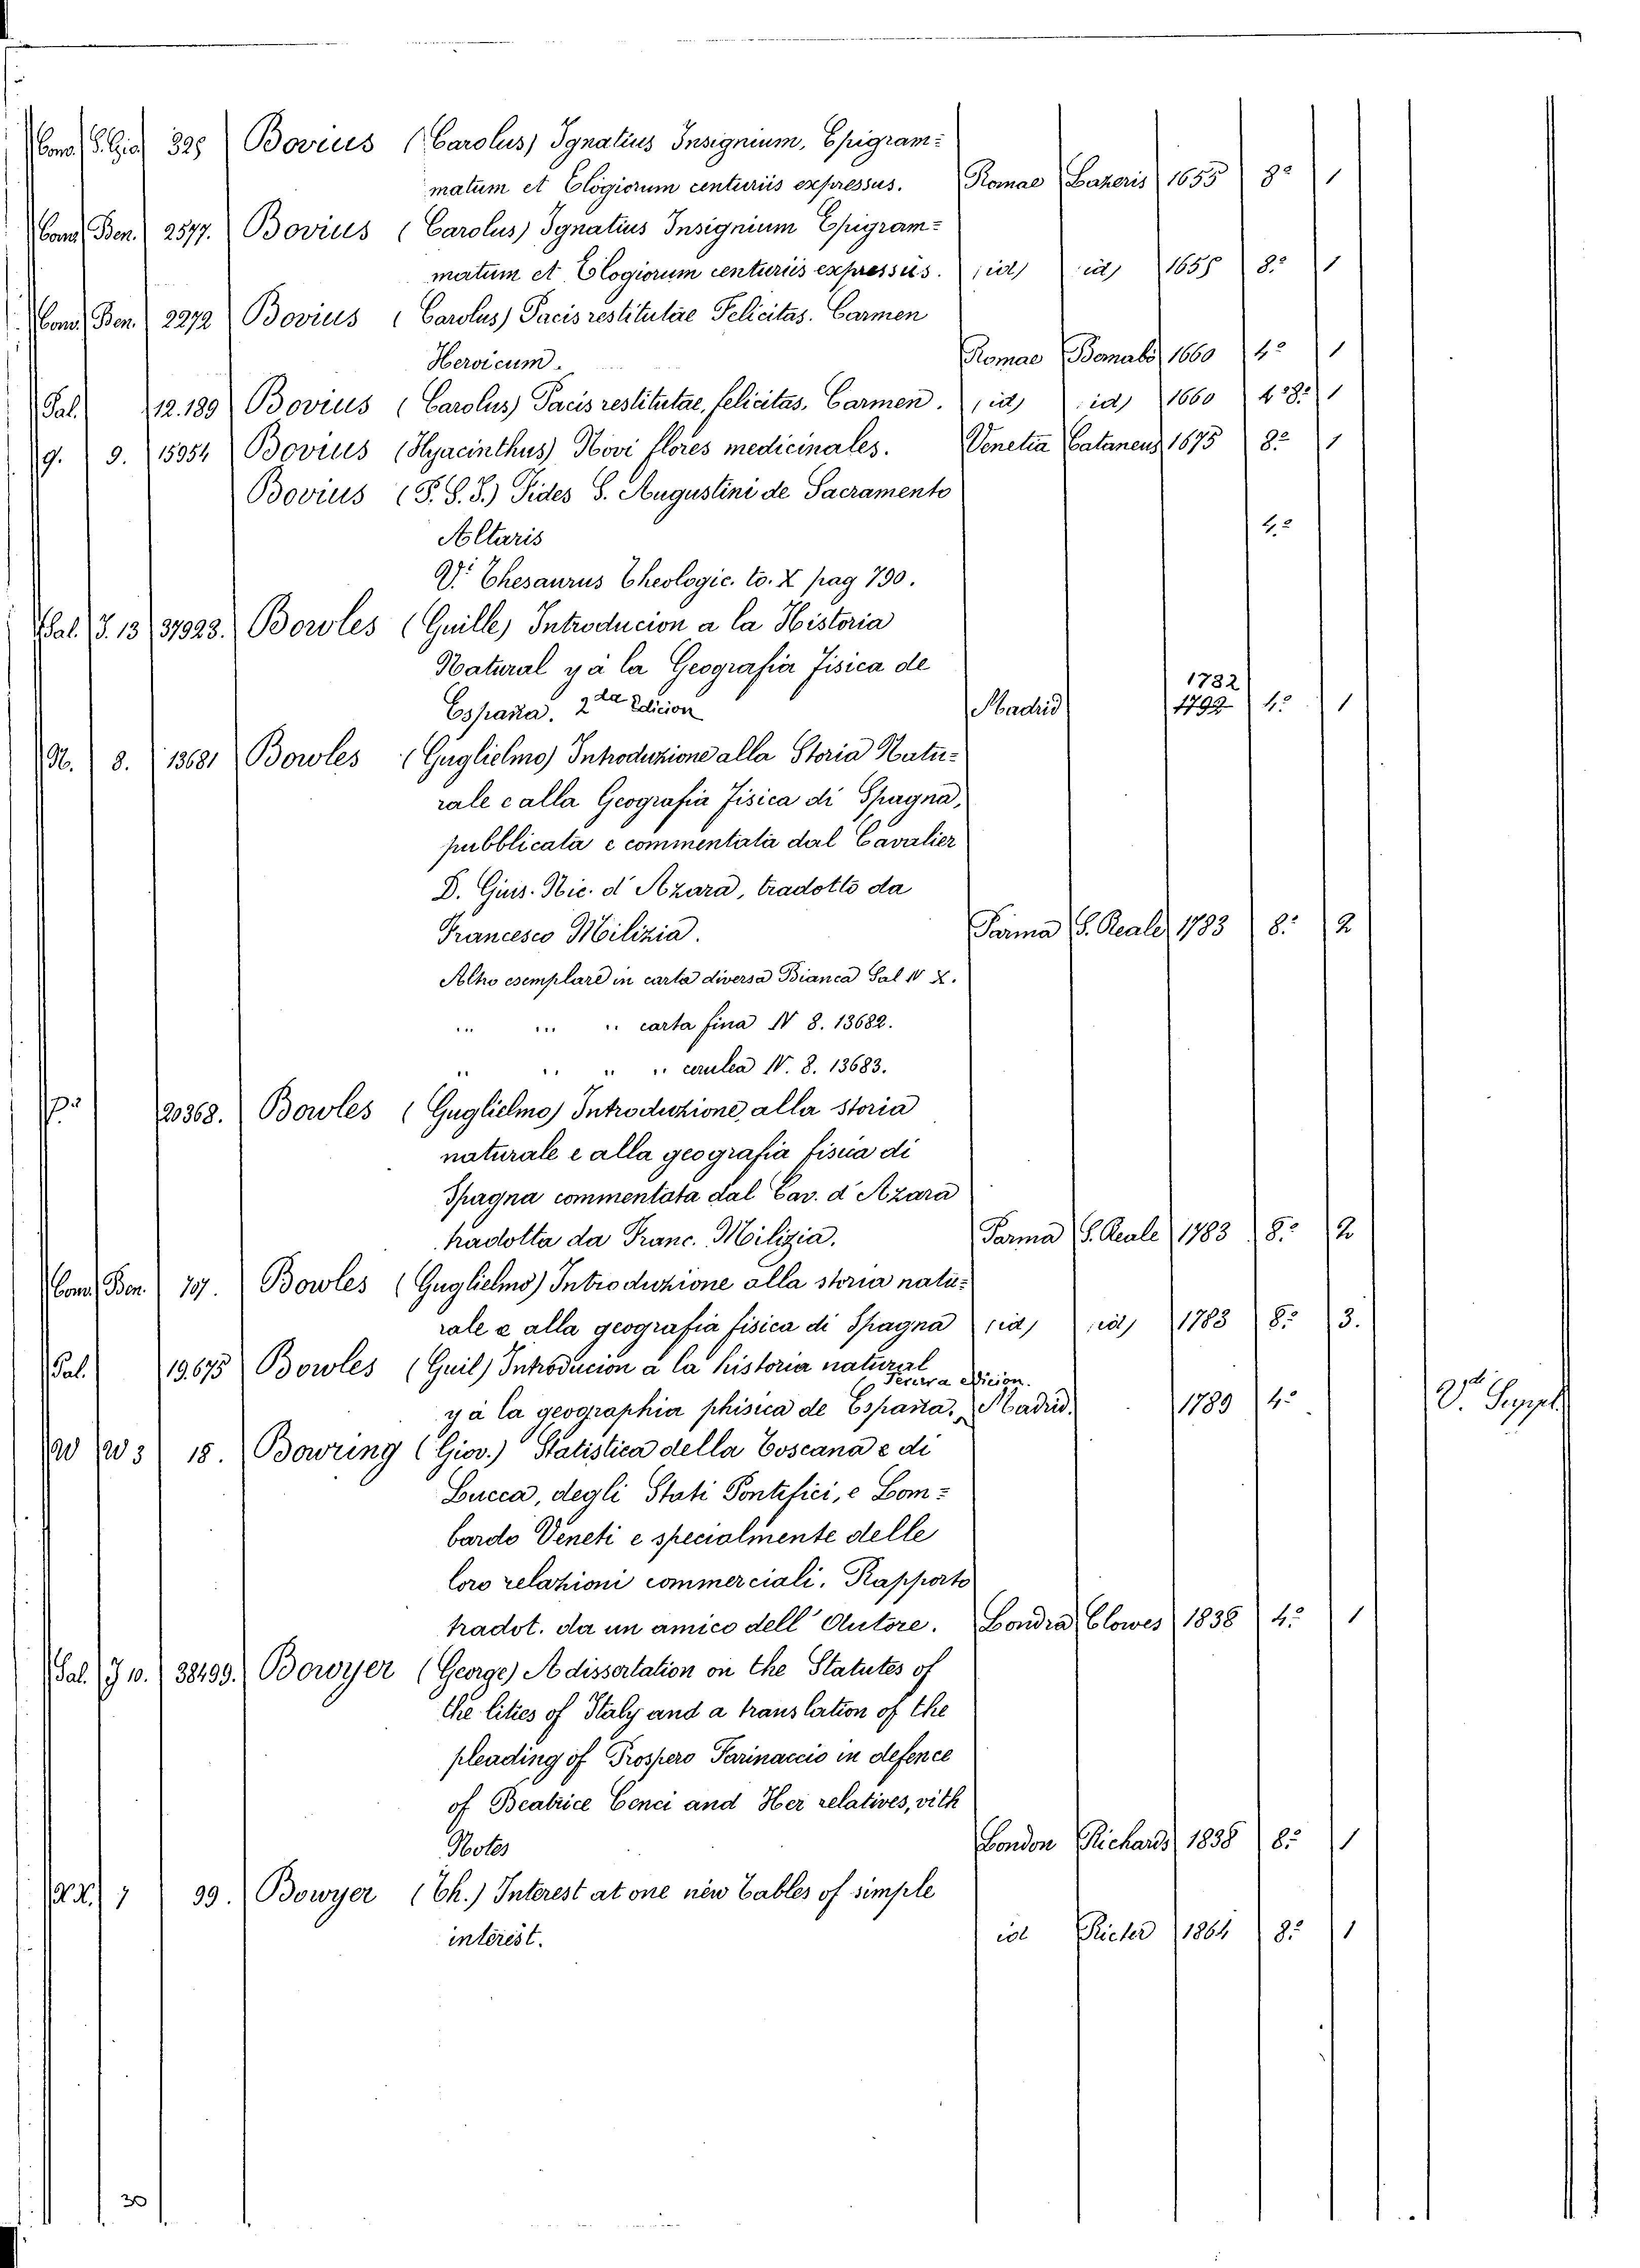 Conv. S. Gio. 325 Bovius (Carolus) Ignatius Insignium, Epigram=
matum et Elogiorum centuriis expressus. Romae Lazeris 1655 8º 1
Conv. Ben. 2577. Bovius (Carolus) Ignatius Insignium Epigram=
matum et Elogiorum centuriis expressus. id id 1655 8º 1
Conv. Ben. 2272 Bovius (Carolus) Pacis restitutae Felicitas. Carmen
Heroicum. Romae Bernabò 1660 4º 1
Pal. 12.189 Bovius (Carolus) Pacis restitutae, felicitas, Carmen. id id 1660 4º 1
9. 9. 15954 Bovius (Hyacinthus) Novi flores medicinales. Venetia Catanens 1675 8º 1
Bovius (P. S. J.) Fides S. Augustini de Sacramento
Altaris 4º
V. Thesaurus Theologic. to. X pag 790.
Pal. J. 13 37923. Bowles (Guille) Introducion a la Historia
Natural y à la Geografia Fisica de
1782
España. 2da Edicion Madrid 1792 4º 1
N. 8. 13681 Bowles (Guglielmo) Introduzione alla Storia Natu=
rale e alla Geografia Fisica di Spagna,
pubblicata e commentata dal Cavalier
D. Gius. Nic. d'Azara, tradotto da
Francesco Milizia. Parma S. Reale 1783 8º 2
Altro esemplare in carta diversa Bianca Sal N X.
" " " carta fina N 8. 13682.
" " " " cerulea N. 8. 13683.
20368. Bowles (Guglielmo) Introduzione alla storia
naturale e alla geografia fisica di
Spagna commentata dal Cav. d'Azara
tradotta da Franc. Milizia. Parma S. Reale 1783 8º 2
Conv. Ben. 707. Bowles (Guglielmo) Introduzione alla storia natu=
rale e alla geografia fisica di Spagna id id 1783 8º 3.
Pal. 19.675 Bowles (Guil) Introducion a la historia natural
Tercera edicion.
y à la geographia phisica de España. Madrid. 1789 4º V. Suppl
W W 3 18. Bowring (Giov.) Statistica della Toscana e di
Lucca, degli Stati Pontifici, e Lom=
bardo Veneti e specialmente delle
loro relazioni commerciali. Rapporto
tradot. da un amico dell'Autore. Londra Clowes 1838 4º 1
Pal. J 10. 38499. Bowyer (George) A dissertation on the Statutes of
the lities of Italy and a translation of the
pleading of Prospero Farinaccio in defence
of Beatrice Cenci and Her relatives, vith
Notes London Richards 1838 8º 1
X.X. 7 99. Bowyer (Th.) Interest at one new Tables of simple
interest. id Richer 1864 8º 1
30